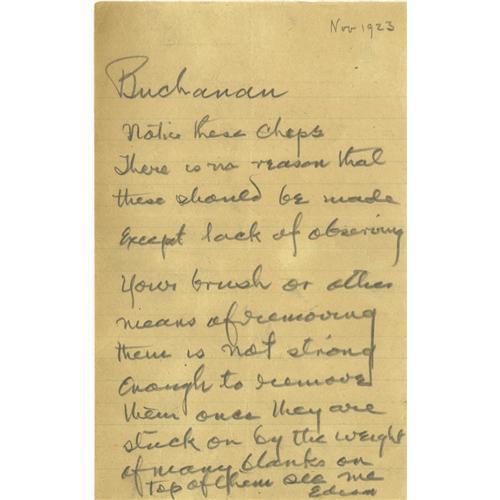 Nov 1923
Buchanan
Notice these Chips
There is no reason that
these should be made
Except lack of observing
Your brush or other
means of removing
them is not strong
enough to remove
them once they are
stuck on by the weight
of many blanks on
top of them see me
Edison